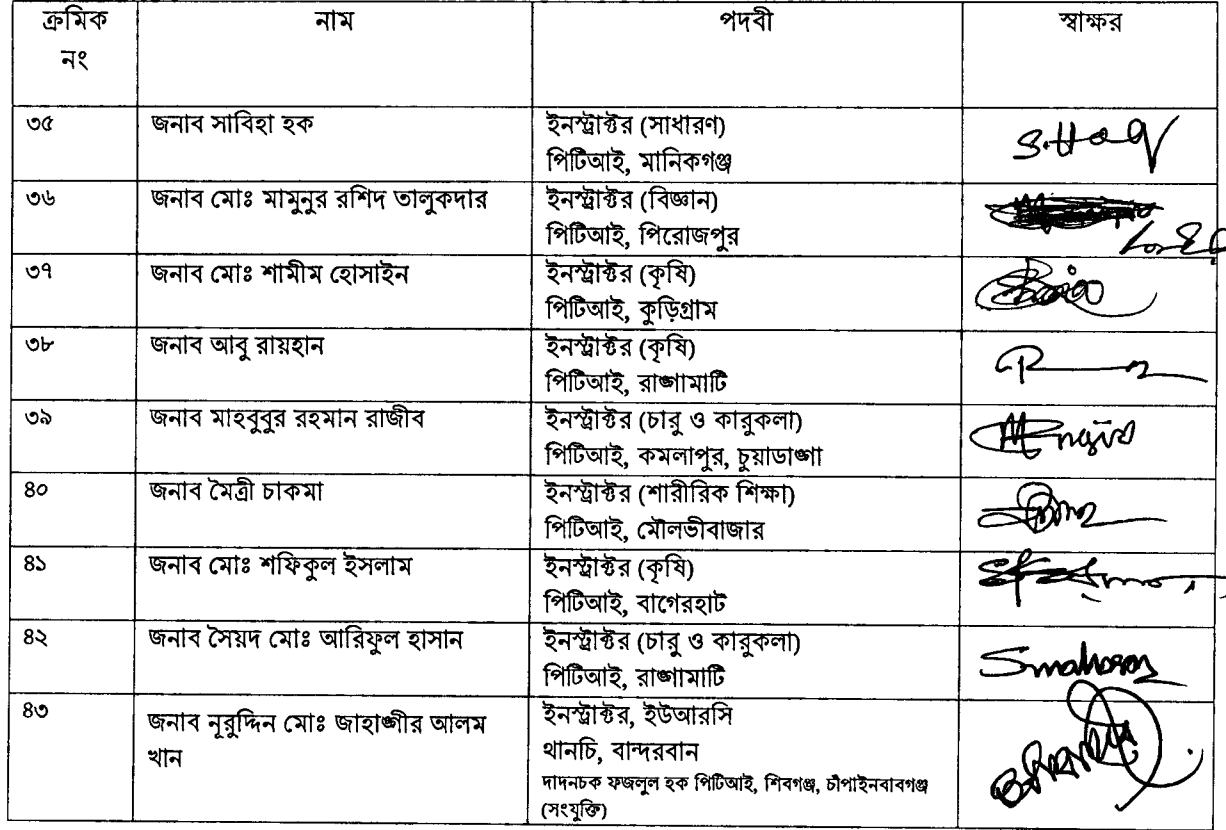 ক্রমিক নাম পদবী স্বাক্ষর
নং
৩৫ জনাব সাবিহা হক ইনস্ট্রাক্টর (সাধারণ) S.Haq
পিটিআই, মানিকগঞ্জ
৩৬ জনাব মোঃ মামুনুর রশিদ তালুকদার ইনস্ট্রাক্টর (বিজ্ঞান)
পিটিআই, পিরোজপুর
৩৭ জনাব মোঃ শামীম হোসাইন ইনস্ট্রাক্টর (কৃষি)
পিটিআই, কুড়িগ্রাম
৩৮ জনাব আবু রায়হান ইনস্ট্রাক্টর (কৃষি)
পিটিআই, রাঙ্গামাটি
৩৯ জনাব মাহবুবুর রহমান রাজীব ইনস্ট্রাক্টর (চারু ও কারুকলা)
পিটিআই, কমলাপুর, চুয়াডাঙ্গা
৪০ জনাব মৈত্রী চাকমা ইনস্ট্রাক্টর (শারীরিক শিক্ষা)
পিটিআই, মৌলভীবাজার
৪১ জনাব মোঃ শফিকুল ইসলাম ইনস্ট্রাক্টর (কৃষি)
পিটিআই, বাগেরহাট
৪২ জনাব সৈয়দ মোঃ আরিফুল হাসান ইনস্ট্রাক্টর (চারু ও কারুকলা)
পিটিআই, রাঙ্গামাটি
৪৩ জনাব নূরুদ্দিন মোঃ জাহাঙ্গীর আলম ইনস্ট্রাক্টর, ইউআরসি
খান থানচি, বান্দরবান
দাদনচক ফজলুল হক পিটিআই, শিবগঞ্জ, চাঁপাইনবাবগঞ্জ
(সংযুক্তি)